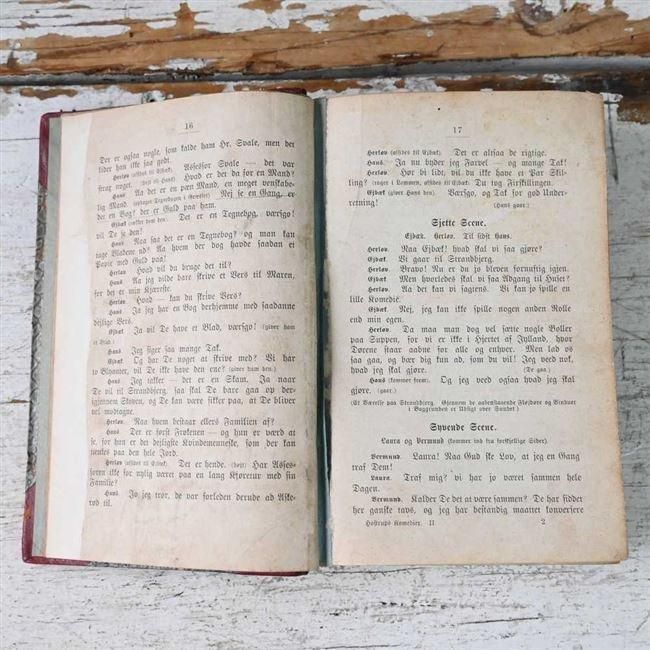 16
Der er ogsaa nogle, som kalde ham Hr. Svale, men det
lider han ikke saa godt.
Herløv (afsides til Ejbæk). Assessor Svale — det var
strax noget. (højt til Hans) Hvad er det da for en Mand?
Hans. Aa det er en pæn Mand, en meget venskabe-
lig Mand. (optager Tegnebogen i Græsset) Nej se en Gang, er
der en Bog! der er Guld paa ham!
Ejbæk (rækker mod den). Det er en Tegnebog, værsgo!
vil De se den?
Hans. Naa saa det er en Tegnebog? og man kan
tage Bladene ud? Aa hvem der dog havde saadan et
Papir med Guld paa!
Herløv. Hvad vil du bruge det til?
Hans. Aa jeg vilde bare skrive et Vers til Maren,
for det er min Kjæreste.
Herløv. Hvad — kan du skrive Vers?
Hans. Ja jeg har en Bog derhjemme med saadanne
dejlige Vers.
Ejbæk. Ja vil De have et Blad, værsgo! (giver ham
et Blad).
Hans. Jeg siger saa mange Tak.
Ejbæk. Og har De noget at skrive med? Vi har
to Blyanter, vil De ikke have den ene? (giver ham den).
Hans. Jeg takker — det er en Skam. Ja naar
De vil til Strandbjerg, saa skal De bare gaa op der-
igjennem Skoven, og De kan være sikker paa, at De bliver
vel modtagne.
Herløv. Naa hvem bestaar ellers Familien af?
Hans. Det er først Frøkenen — og hun er værd at
se, for hun er det dejligste Kvindemenneske, som der kan
nænnes paa den hele Jord.
Herløv (afsides til Ejbæk). Det er hende. (højt) Har Asses-
soren ikke for nylig været paa en lang Kjøretur med sin
Familie?
Hans. Jo jeg tror, de var forleden derude ad Aske-
rød til.
17
Herløv (afsides til Ejbæk). Det er altsaa de rigtige.
Hans. Ja nu byder jeg Farvel — og mange Tak!
Herløv. Hør bi lidt, vil du ikke have et Par Skil-
ling? (tager i Lommen, afsides til Ejbæk) Du tog Firskillingen.
Ejbæk (giver Hans den). Værsgo, og Tak for god Under-
retning! (Hans gaar.)
Sjette Scene.
Ejbæk. Herløv. Til sidst Hans.
Herløv. Naa Ejbæk! hvad skal vi saa gjøre?
Ejbæk. Vi gaar til Strandbjerg.
Herløv. Bravo! Nu er du jo bleven fornuftig igjen.
Ejbæk. Men hvorledes skal vi faa Adgang til Huset?
Herløv. Aa det kan vi sagtens. Vi kan jo spille en
lille Komedie.
Ejbæk. Nej, jeg kan ikke spille nogen anden Rolle
end min egen.
Herløv. Da maa man dog vel sætte nogle Boller
paa Suppen, for vi er ikke i Hjertet af Jylland, hvor
Dørene staar aabne for alle og enhver. Men lad os
saa gaa, og bær dig kun ad, som du kan, min Ven!
Jeg veed nok, hvad jeg skal gjøre. (De gaa.)
Hans (kommer frem). Og jeg ved ogsaa hvad jeg skal
gjøre. (gaar.)
(Et Værelse paa Strandbjerg. Gjennem de aabenstaaende Fløjdøre og Vinduer
i Baggrunden er Udsigt over Sundet.)
Syvende Scene.
Laura og Vermund (kommer ind fra forskjellige Sider).
Vermund. Laura! Naa Gud ske Lov, at jeg en Gang
traf Dem!
Laura. Traf mig? vi har jo været sammen hele
Dagen.
Vermund. Kalder De det at være sammen? De har siddet
her ganske tavs, og jeg har bestandig maattet konversere
Hostrups Komedier. II 2